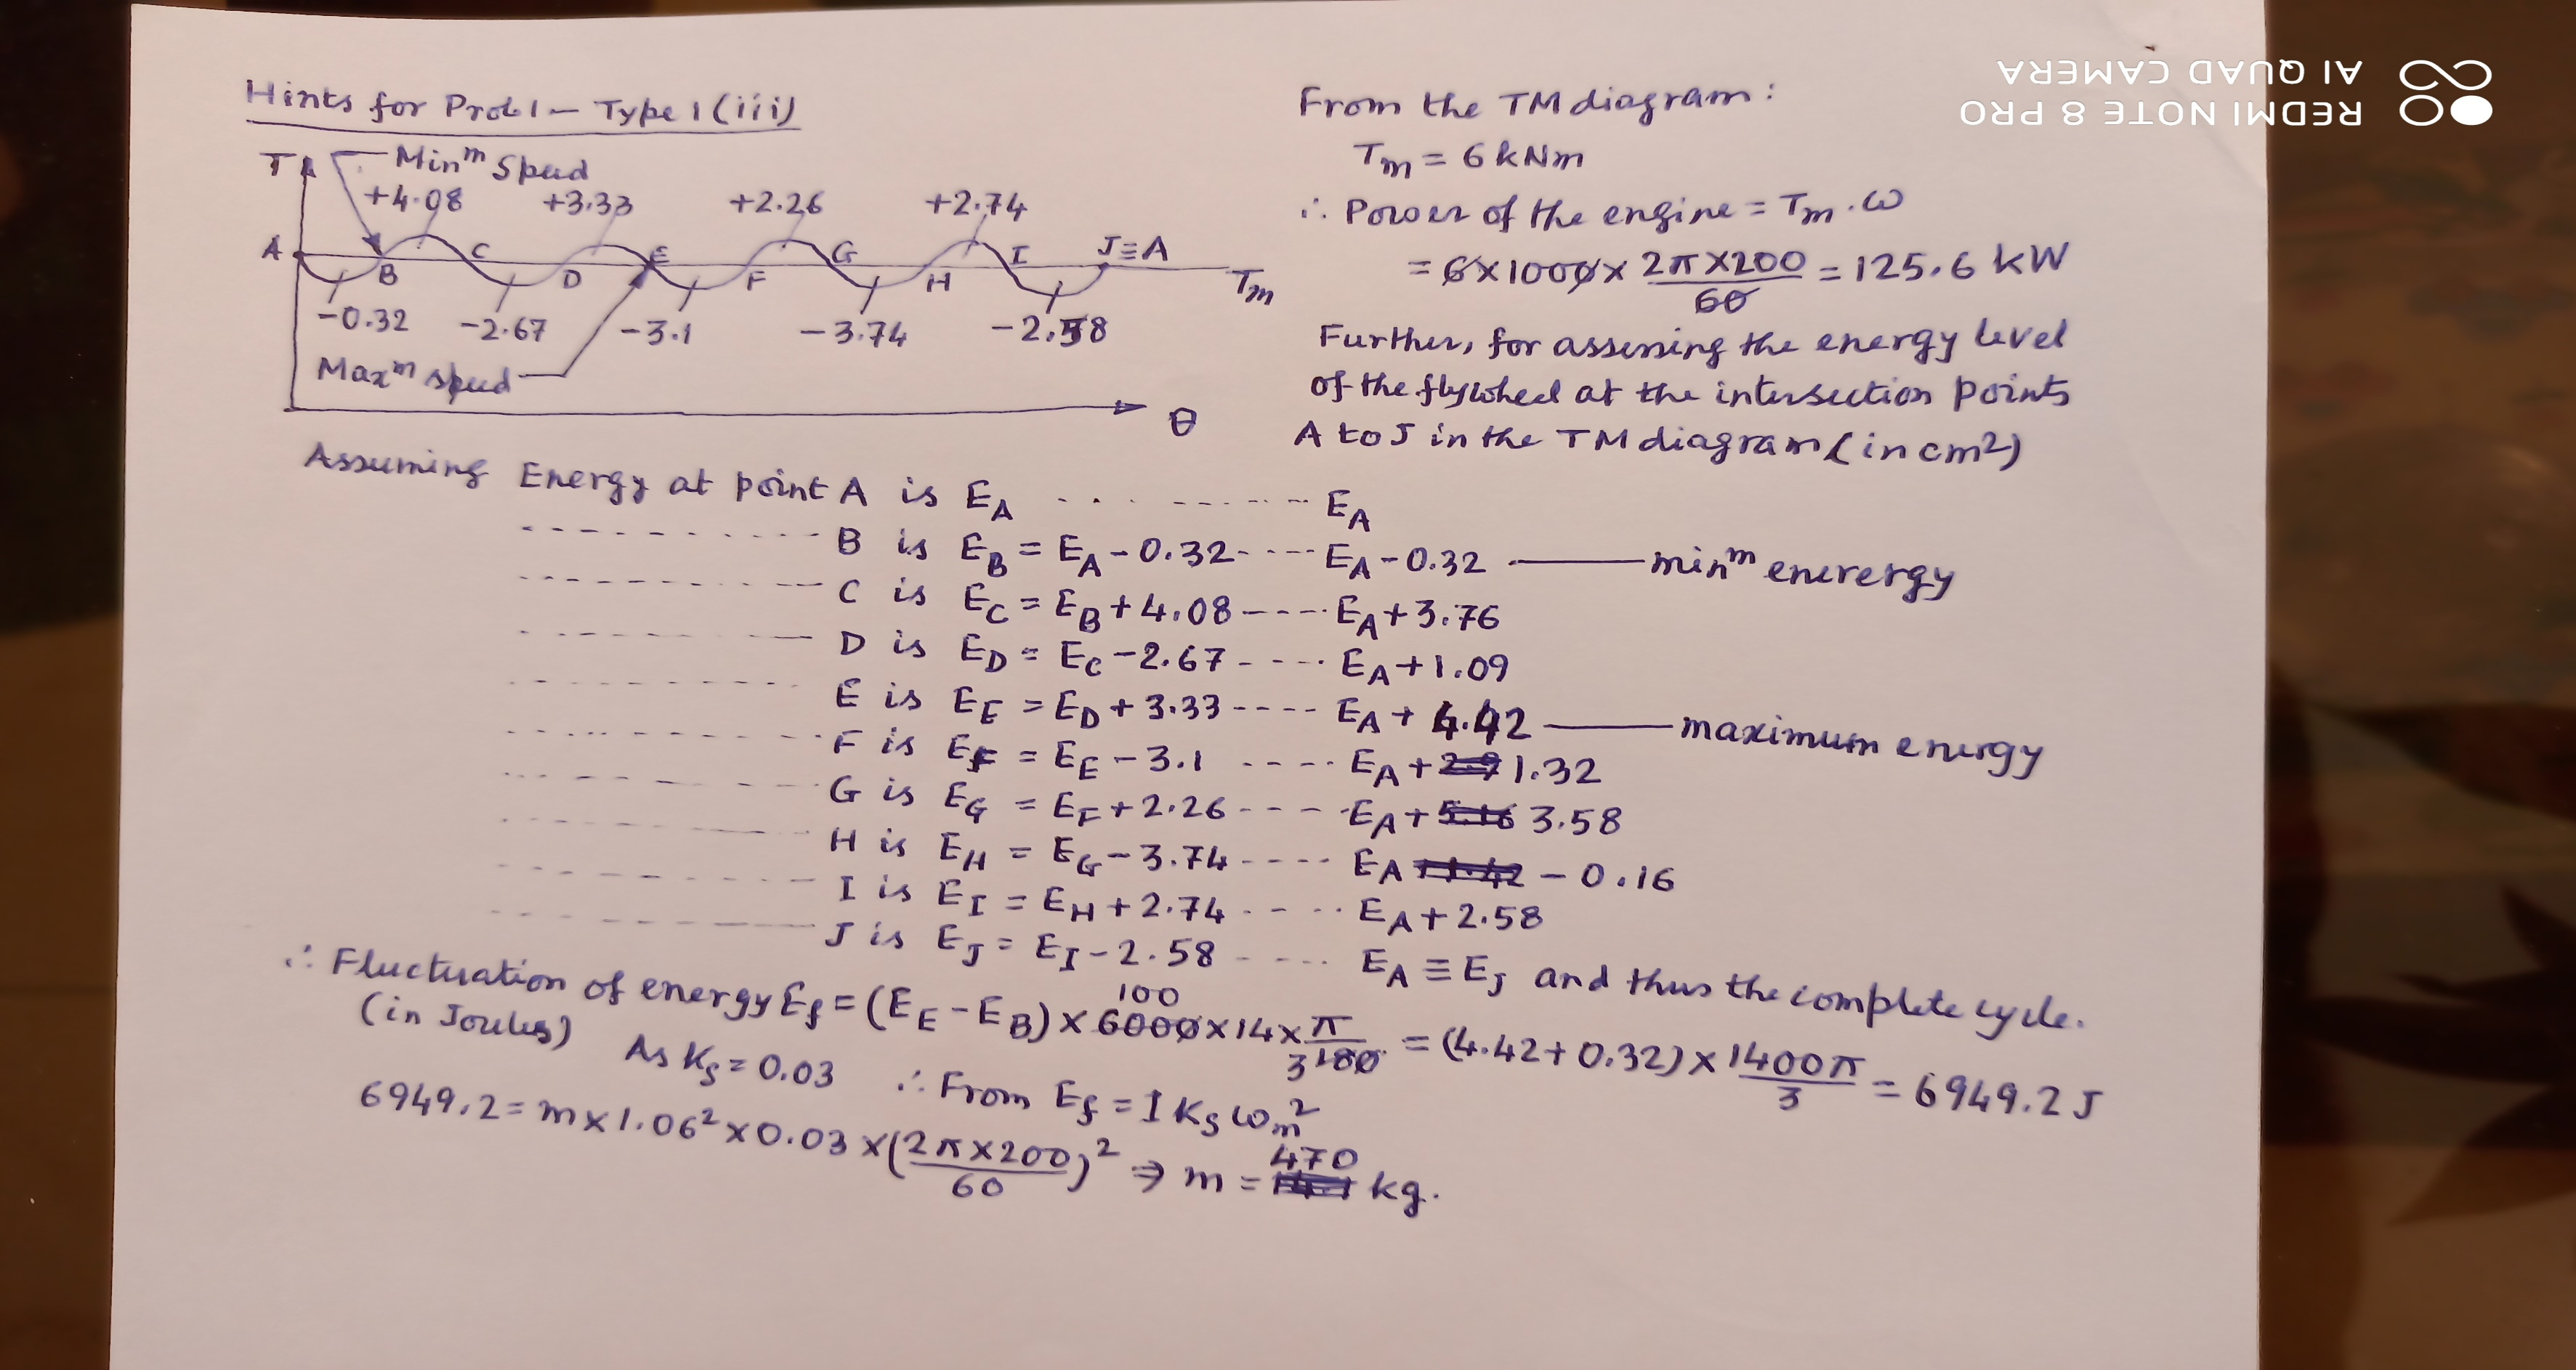 Hints for Prob1 - Type 1 (iii)
T
Minᵐ Speed
+4.08 +3.33 +2.26 +2.74
A B C D E F G H I J≡A
Tm
-0.32 -2.67 -3.1 -3.74 -2.58
Maxᵐ speed
θ
From the TM diagram:
Tm = 6 kNm
∴ Power of the engine = Tm . ω
= 6×1000× 2π×200/60 = 125.6 kW
Further, for assening the energy level
of the flywheel at the intersection points
A to J in the TM diagram (in cm²)
Assuming Energy at point A is E_A ........ E_A
........ B is E_B = E_A - 0.32 ---- E_A - 0.32 —— minᵐ enerergy
........ C is E_C = E_B + 4.08 ---- E_A + 3.76
........ D is E_D = E_C - 2.67 ---- E_A + 1.09
........ E is E_E = E_D + 3.33 ---- E_A + 4.42 —— maximum energy
........ F is E_F = E_E - 3.1 ---- E_A + 1.32
........ G is E_G = E_F + 2.26 ---- E_A + 3.58
........ H is E_H = E_G - 3.74 ---- E_A - 0.16
........ I is E_I = E_H + 2.74 ---- E_A + 2.58
........ J is E_J = E_I - 2.58 ---- E_A ≡ E_J and thus the complete cycle.
∴ Fluctuation of energy E_f = (E_E - E_B) × 6000 × 14 × π/180 = (4.42 + 0.32) × 1400π/3 = 6949.2 J
100
3
(in Joules) As K_s = 0.03 ∴ From E_f = I K_s ω_m²
6949.2 = m × 1.06² × 0.03 × (2π×200/60)² ⇒ m = 470 kg.
REDMI NOTE 8 PRO
AI QUAD CAMERA